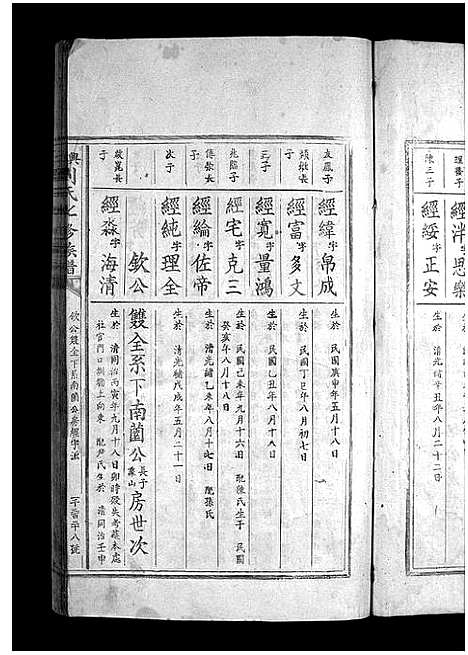 理養子
經洋字思樂
陳三子
經綏字正安
生於 清光緒辛丑年八月二十二日
友鳳子
經緯字帛成
生於 民國庚申年五月十八日
子
經富字多文
生於 民國丁巳年八月初七日
三子
經寬字量鴻
生於 民國乙丑年八月十八日
兆臨子
經宅字克三
生於 民國己未年九月十六日 配陳氏生于 民國
癸亥年八月十八日
傳餘長子
經綸字佐帝
生於 清光緒乙未年八月十七日 配孫氏
次子
經純字理全
生於 清光緒戊戌年五月二十一日
欽公雙全系下南園公長子房世次
啟昆長子
經淼字海清
生於 清同治丙寅年九月十八日卯時歿失考葬本處
社官門口 向東 配尹氏生於 清同治壬申
氏七修族譜
欽公雙全下系南園公房經字派